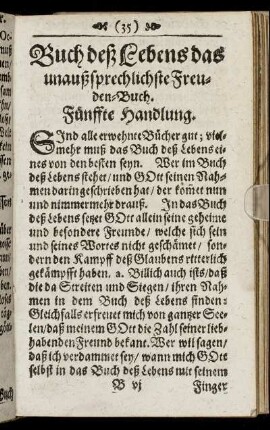 (35)
Buch deß Lebens das
unaußsprechlichste Freu-
den-Buch.
Fünffte Handlung.
SInd alle erwehnte Bücher gut; viel-
mehr muß das Buch deß Lebens ei-
nes von den besten seyn. Wer im Buch
deß Lebens stehet / und GOtt seinen Nah-
men daringeschrieben hat / der kom̃et nun
und nimmermehr drauß. In das Buch
deß Lebens setzet GOtt allein seine geheime
und besondere Freunde / welche sich sein
und seines Wortes nicht geschämet / son-
dern den Kampff deß Glaubens ritterlich
gekämpfft haben. a. Billich auch ists / daß
die da Streiten und Siegen / ihren Nah-
men in dem Buch deß Lebens finden.
Gleichfalls erfreuet mich von gantzer See-
len / daß meinem GOtt die Zahl seiner lieb-
habenden Freund bekant. Wer wil sagen /
daß ich verdammet sey / wann mich GOtt
selbst in das Buch deß Lebens mit seinem
B vj Finger